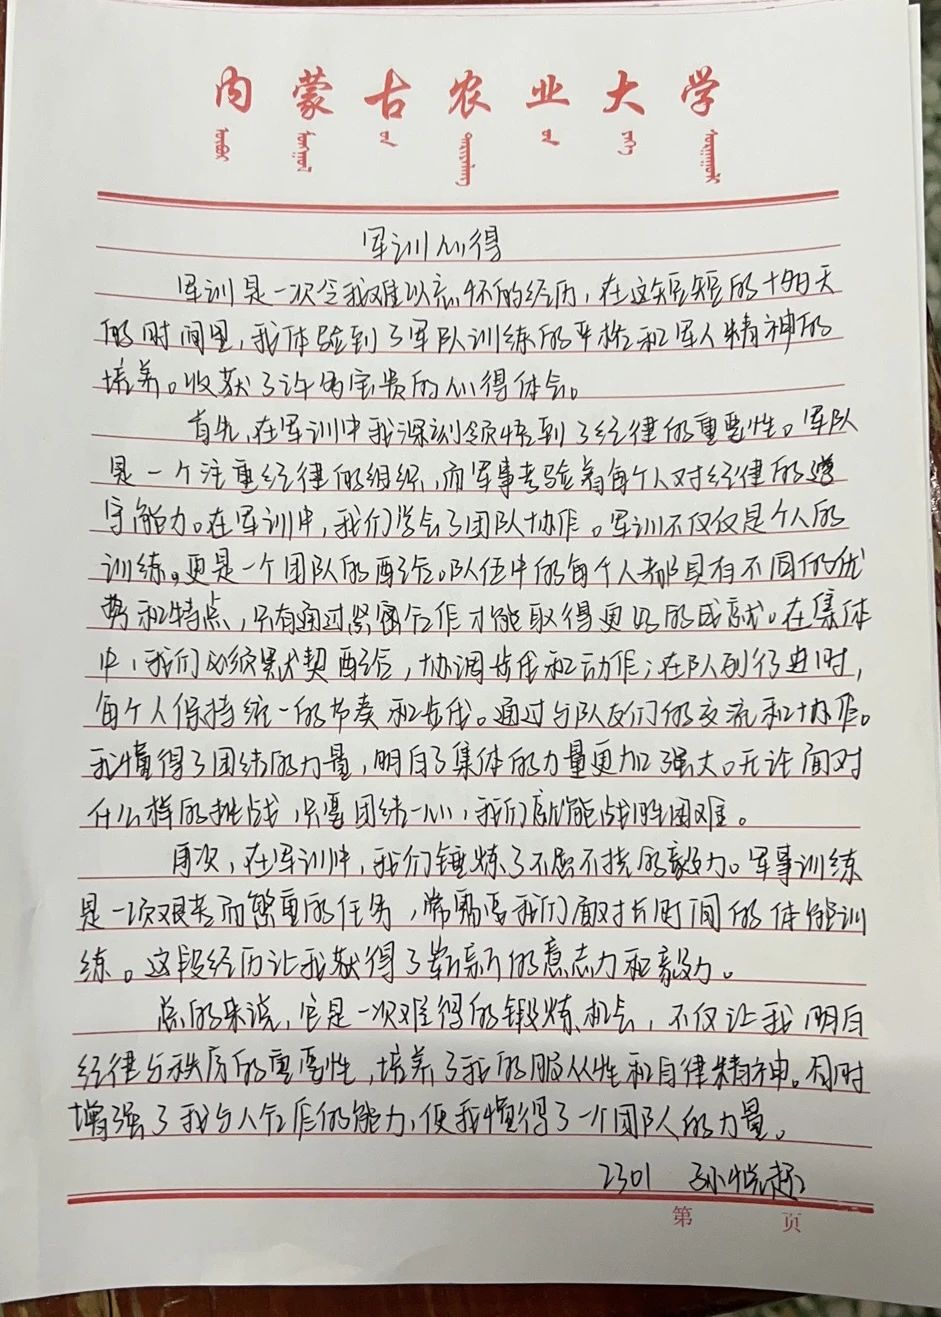 内蒙古农业大学
军训心得
军训是一次令我难以忘怀的经历，在这短短的十多天
的时间里，我体验到了军队训练的严格和军人精神的
培养。收获了许多宝贵的心得体会。
首先，在军训中我深刻领悟到了纪律的重要性。军队
是一个注重纪律的组织，而军事考验着每个人对纪律的遵
守能力。在军训中，我们学会了团队协作。军训不仅仅是个人的
训练。更是一个团队的配合。队伍中的每个人都具有不同的优
势和特点，只有通过紧密合作才能取得更好的成就。在集体
中，我们必须默契配合，协调步伐和动作；在队列行进时，
每个人保持统一的节奏和步伐。通过与队友们的交流和协作。
我懂得了团结的力量，明白了集体的力量更加强大。无论面对
什么样的挑战，只要团结一心，我们就能战胜困难。
再次，在军训中，我们锤炼了不屈不挠的毅力。军事训练
是一次艰苦而繁重的任务，常需要我们面对长时间的体能训
练。这段经历让我获得了崭新的意志力和毅力。
总的来说，它是一次难得的锻炼机会，不仅让我明白
纪律与秩序的重要性，培养了我的服从性和自律精神。同时
增强了我与人合作的能力，使我懂得了一个团队的力量。
2301 孙悦
第 页